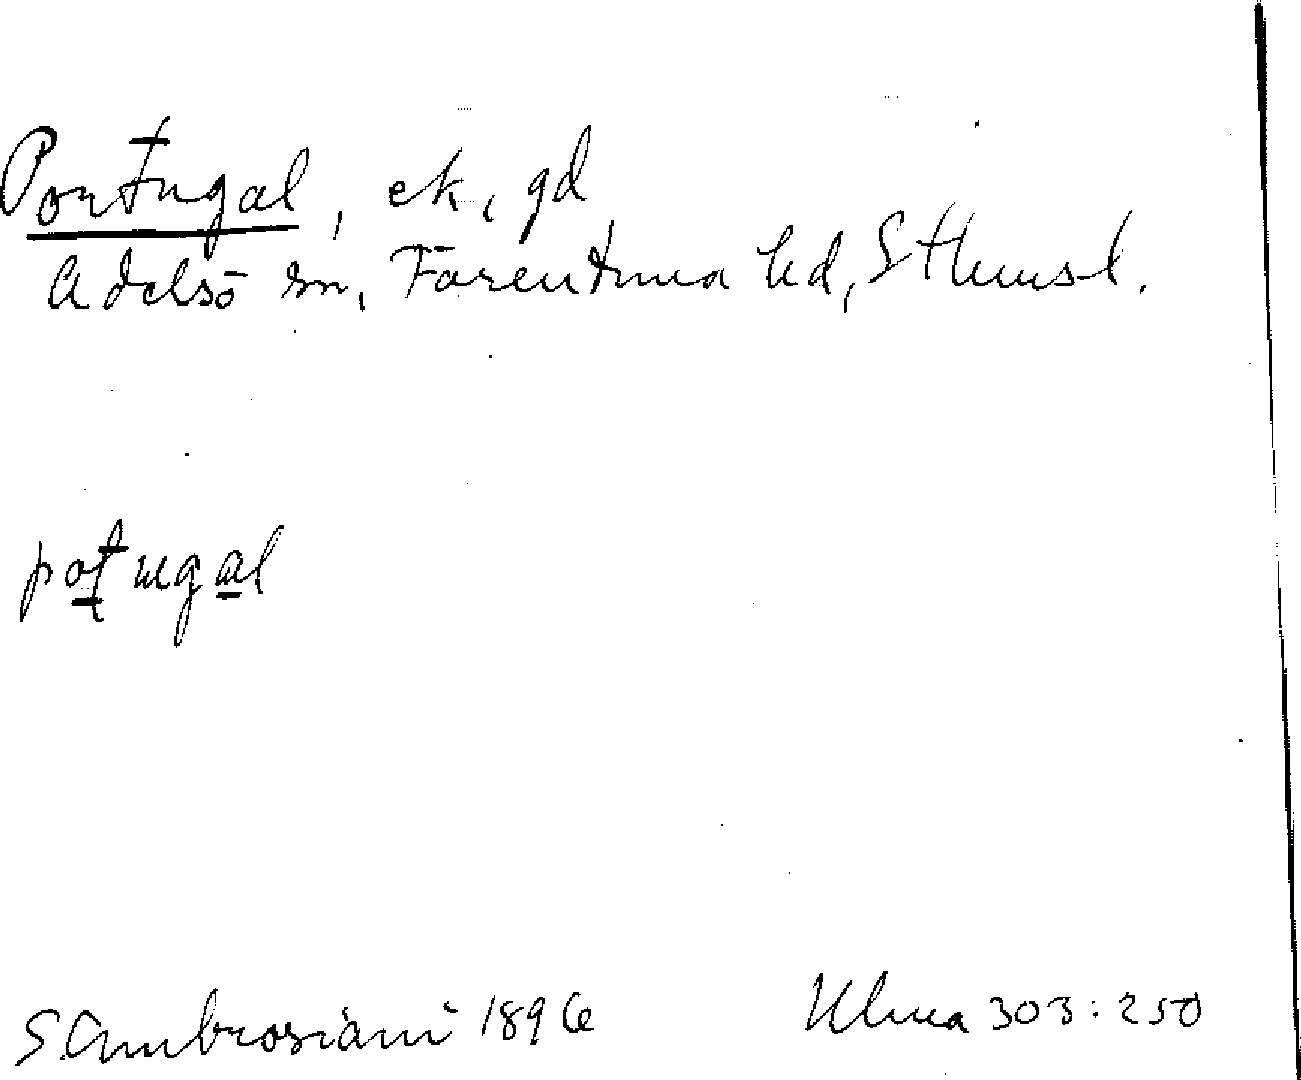 Portugal, ek, gd
Adelsö sn, Färentuna hd, Sthmsl.
potugal
S. Ambrosiani 1896
Uluna 303:250